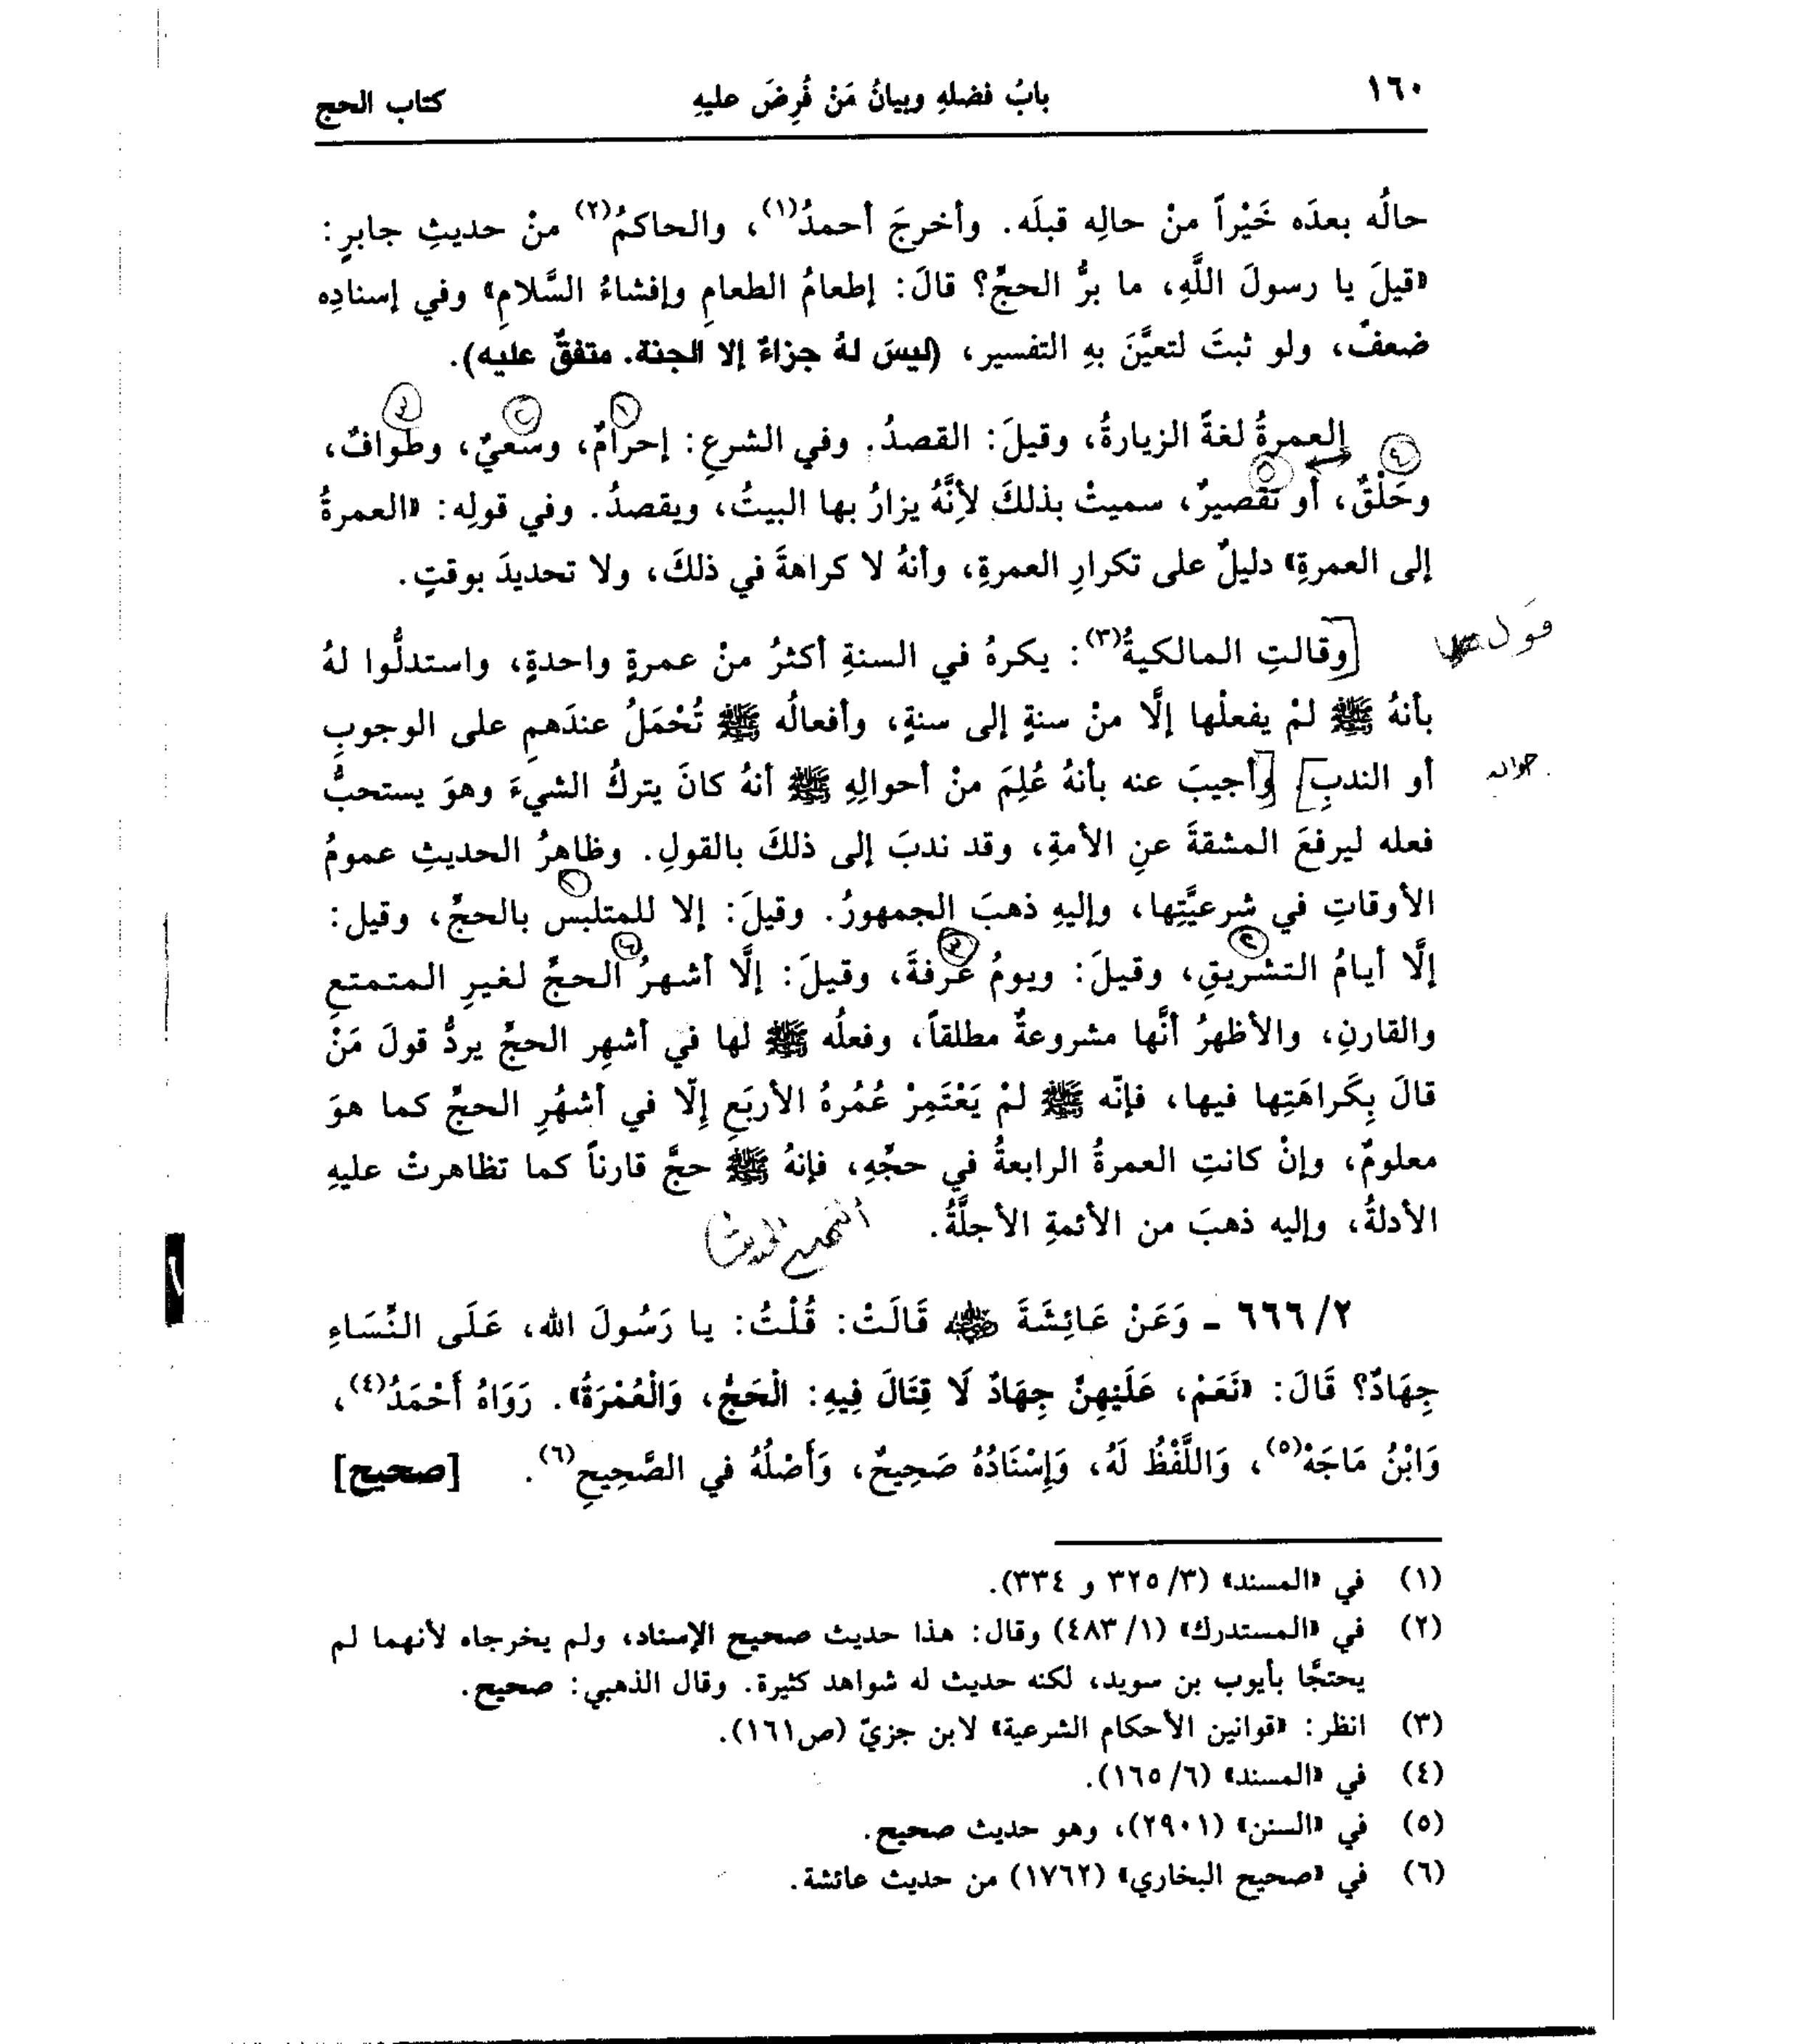 ١٦٠ بابُ فضلهِ وبيانُ مَنْ فُرِضَ عليهِ كتاب الحج
حالُه بعدَه خَيْراً منْ حالِه قبلَه. وأخرجَ أحمدُ(١)، والحاكمُ(٢) منْ حديثِ جابرٍ:
«قيلَ يا رسولَ اللَّهِ، ما برُّ الحجِّ؟ قالَ: إطعامُ الطعامِ وإفشاءُ السَّلامِ» وفي إسنادِه
ضعفٌ، ولو ثبتَ لتعيَّنَ بهِ التفسير، (ليسَ لهُ جزاءٌ إلا الجنة. متفقٌ عليه).
العمرةُ لغةً الزيارةُ، وقيلَ: القصدُ. وفي الشرعِ: إحرامٌ، وسعيٌ، وطوافٌ،
وحَلْقٌ، أو تقصيرٌ، سميتْ بذلكَ لأنَّهُ يزارُ بها البيتُ، ويقصدُ. وفي قولِه: «العمرةُ
إلى العمرةِ» دليلٌ على تكرارِ العمرةِ، وأنهُ لا كراهةَ في ذلكَ، ولا تحديدَ بوقتٍ.
[وقالتِ المالكيةُ(٣): يكرهُ في السنةِ أكثرُ منْ عمرةٍ واحدةٍ، واستدلُّوا لهُ قول
بأنهُ ﷺ لمْ يفعلْها إلَّا منْ سنةٍ إلى سنةٍ، وأفعالُه ﷺ تُحْمَلُ عندَهمِ على الوجوبِ
أو الندبِ] [وأجيبَ عنه بأنهُ عُلِمَ منْ أحوالِهِ ﷺ أنهُ كانَ يتركُ الشيءَ وهوَ يستحبُّ
فعله ليرفعَ المشقةَ عنِ الأمةِ، وقد ندبَ إلى ذلكَ بالقولِ. وظاهرُ الحديثِ عمومُ
الأوقاتِ في شرعيَّتِها، وإليهِ ذهبَ الجمهورُ. وقيلَ: إلا للمتلبسِ بالحجِّ، وقيل:
إلَّا أيامُ التشريقِ، وقيلَ: ويومُ عرفةَ، وقيلَ: إلَّا أشهرُ الحجِّ لغيرِ المتمتعِ
والقارنِ، والأظهرُ أنَّها مشروعةٌ مطلقاً، وفعلُه ﷺ لها في أشهِر الحجِّ يردُّ قولَ مَنْ
قالَ بِكَراهَتِها فيها، فإنّه ﷺ لمْ يَعْتَمِرْ عُمُرهُ الأربَعِ إلّا في أشهُرِ الحجِّ كما هوَ
معلومٌ، وإنْ كانتِ العمرةُ الرابعةُ في حجِّهِ، فإنهُ ﷺ حجَّ قارناً كما تظاهرتْ عليهِ
الأدلةُ، وإليه ذهبَ من الأئمةِ الأجلَّةُ.
٢/ ٦٦٦ - وَعَنْ عَائِشَةَ رضي الله عنها قَالَتْ: قُلْتُ: يا رَسُولَ الله، عَلَى النِّسَاءِ
جِهَادٌ؟ قَالَ: «نَعَمْ، عَلَيْهِنَّ جِهَادٌ لَا قِتَالَ فِيهِ: الْحَجُّ، وَالْعُمْرَةُ». رَوَاهُ أَحْمَدُ(٤)،
وَابْنُ مَاجَهْ(٥)، وَاللَّفْظُ لَهُ، وَإِسْنَادُهُ صَحِيحٌ، وَأَصْلُهُ في الصَّحِيحِ(٦). [صحيح]
(١) في «المسند» (٣/ ٣٢٥ و ٣٣٤).
(٢) في «المستدرك» (١/ ٤٨٣) وقال: هذا حديث صحيح الإسناد، ولم يخرجاه لأنهما لم
يحتجَّا بأيوب بن سويد، لكنه حديث له شواهد كثيرة. وقال الذهبي: صحيح.
(٣) انظر: «قوانين الأحكام الشرعية» لابن جزيّ (ص١٦١).
(٤) في «المسند» (٦/ ١٦٥).
(٥) في «السنن» (٢٩٠١)، وهو حديث صحيح.
(٦) في «صحيح البخاري» (١٧٦٢) من حديث عائشة.